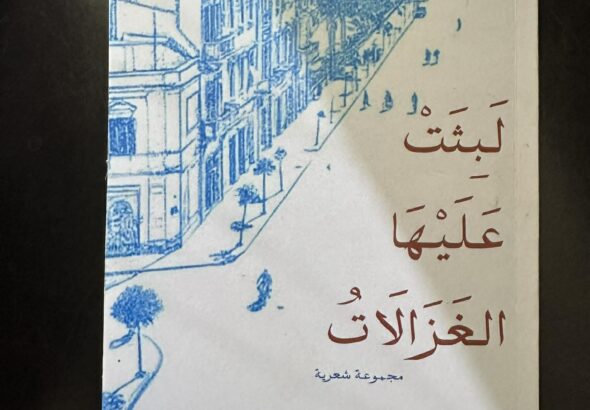 لَبِثَتْ
عَلَيْهَا
الغَزَالَاتُ
مجموعة شعرية